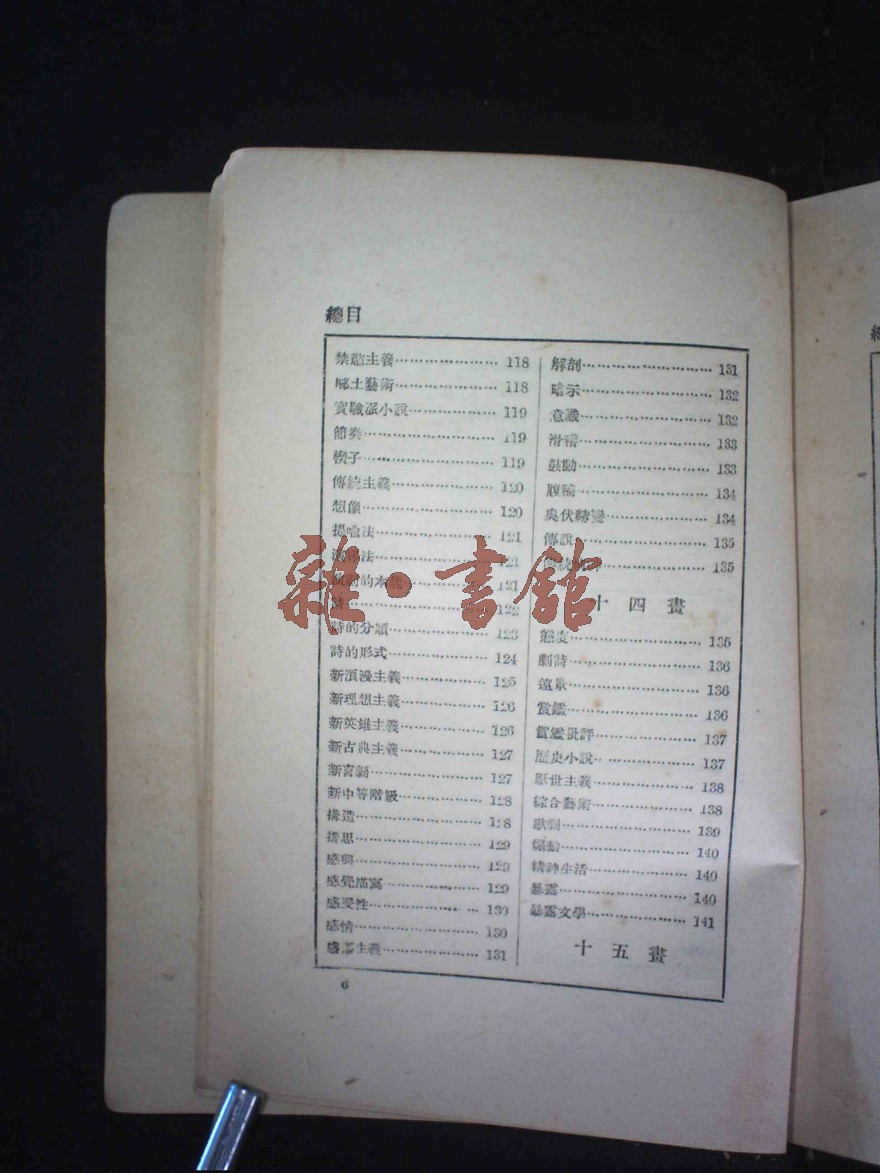 總目
禁慾主義…………………118
鄉土藝術…………………118
實驗派小說………………119
節奏………………………119
楔子………………………119
傳統主義…………………120
想像………………………120
提喻法……………………121
121
的本能……………………121
詩…………………………122
詩的分類…………………123
詩的形式…………………124
新浪漫主義………………125
新理想主義………………126
新英雄主義………………126
新古典主義………………127
新喜劇……………………127
新中等階級………………128
構造………………………128
構思………………………129
感興………………………129
感覺描寫…………………129
感受性……………………130
感情………………………130
感傷主義…………………131
解剖………………………131
暗示………………………132
意識………………………132
滑稽………………………133
鼓動………………………133
腹稿………………………134
奧伏赫變…………………134
傳說………………………135
135
十四畫
態度………………………135
劇詩………………………136
遠景………………………136
賞鑑………………………136
賞鑑批評…………………137
歷史小說…………………137
厭世主義…………………138
綜合藝術…………………138
歌劇………………………139
煽動………………………140
精神生活…………………140
暴露………………………140
暴露文學…………………141
十五畫
6
雜·書館